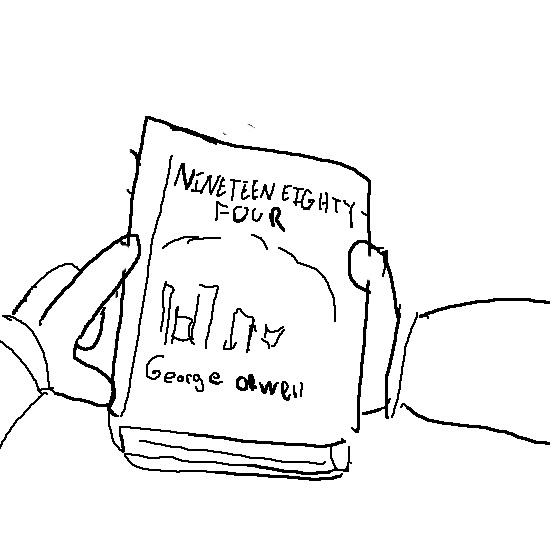 NINETEEN EIGHTY-
FOUR
George orwell